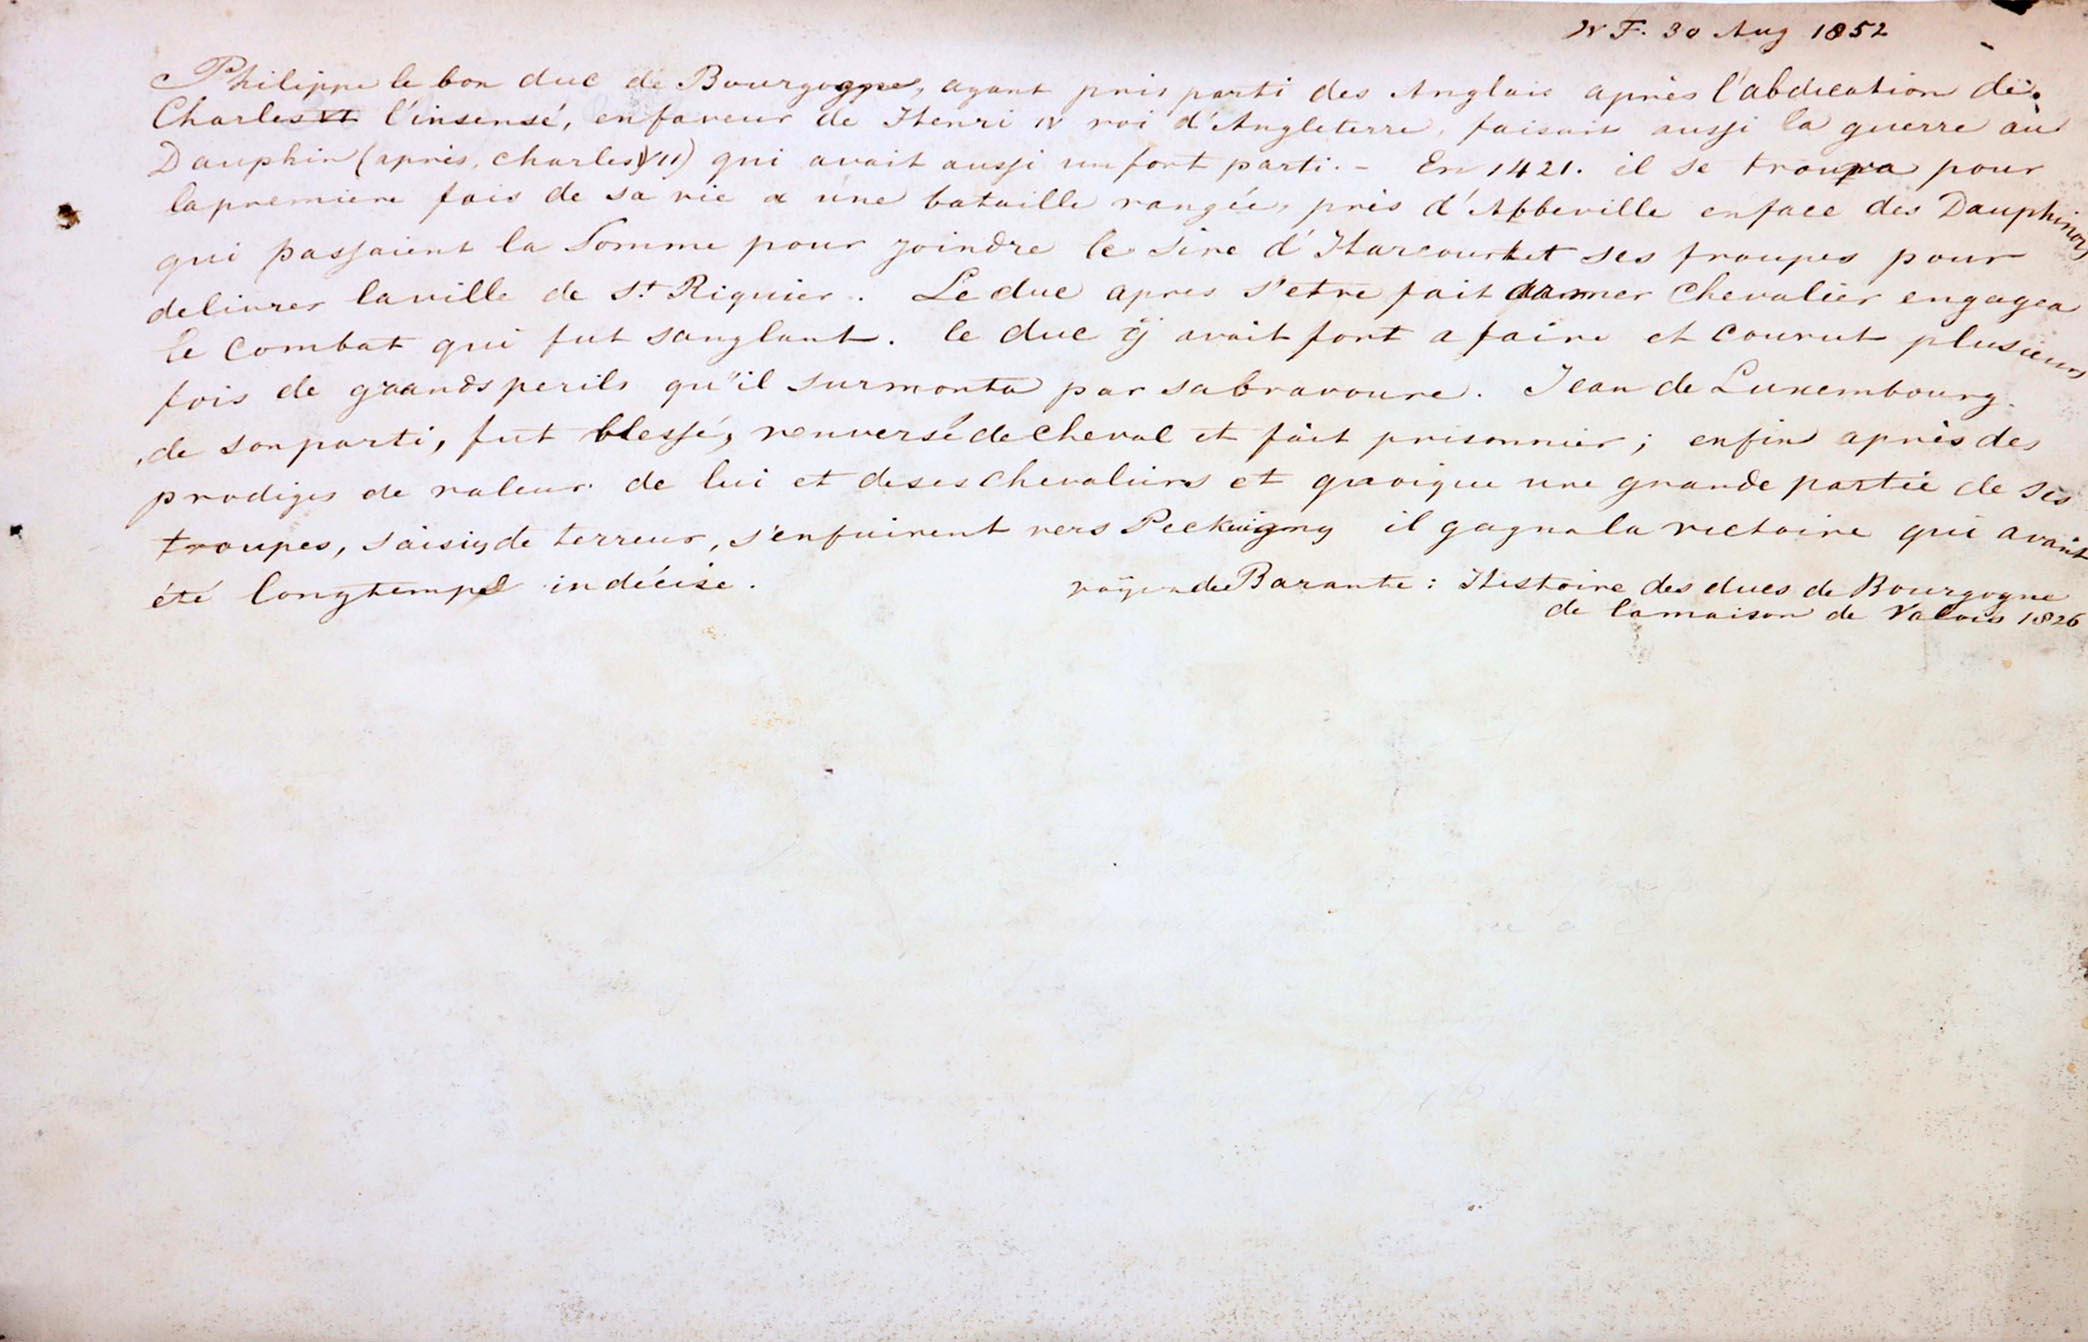 W F. 30 Aug 1852
Philippe le bon duc de Bourgogne, ayant pris parti des Anglais après l'abdication de
Charles VI l'insensé, en faveur de Henri IV roi d'Angleterre, faisait aussi la guerre au
Dauphin (après, Charles VII) qui avait aussi un fort parti. - En 1421. il se trouva pour
la premiere fois de sa vie a une bataille rangée, près d'Abbeville en face des Dauphinois
qui passaient la Somme pour joindre le Sire d'Harcourt et ses troupes pour
delivrer la ville de St Riquier. Le duc apres s'etre fait armer Chevalier engagea
le Combat qui fut sanglant. le duc ÿ avait fort a faire et courut plusieurs
fois de grands perils qu'il surmonta par sa bravoure. Jean de Luxembourg
de son parti, fut blessé, renversé de cheval et fait prisonnier; enfin après des
prodiges de valeur de lui et de ses chevaliers et quoique une grande partie de ses
troupes, saisis de terreur, s'enfuirent vers Pecquigny il gagna la victoire qui avait
été longtemps indécise.
voÿez de Barante: Histoire des ducs de Bourgogne
de la maison de Valois 1826